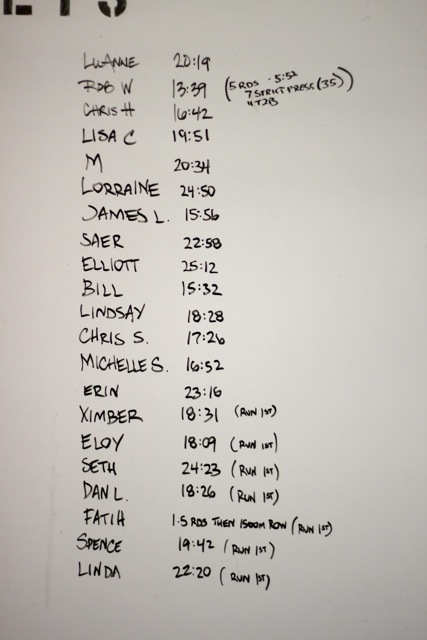 LUANNE 20:19
ROB W 13:39 (5 RDS - 5:52
7 STRICT PRESS (35))
4 T2B
CHRIS H 16:42
LISA C 19:51
M 20:34
LORRAINE 24:50
JAMES L. 15:56
SAER 22:58
ELLIOTT 25:12
BILL 15:32
LINDSAY 18:28
CHRIS S. 17:26
MICHELLE S. 16:52
ERIN 23:16
XIMBER 18:31 (RUN 1ST)
ELOY 18:09 (RUN 1ST)
SETH 24:23 (RUN 1ST)
DAN L. 18:26 (RUN 1ST)
FATIH 1.5 RDS THEN 1500M ROW (RUN 1ST)
SPENCE 19:42 (RUN 1ST)
LINDA 22:20 (RUN 1ST)